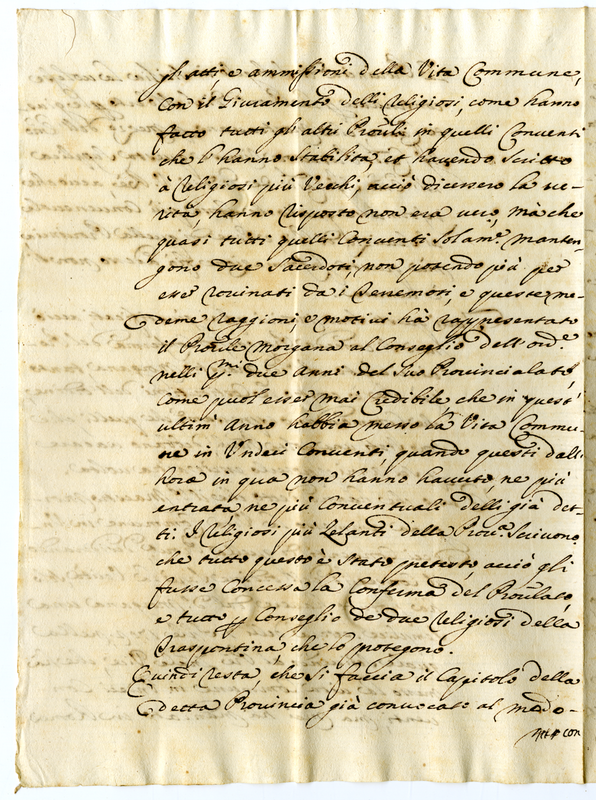 gl'atti, e ammissioni della Vita Commune,
con il Giuramento delli Religiosi, come hanno
fatto tutti gli altri Prouli in quelli Conventi
che l'hanno stabilita, et havendo scritto
à Religiosi più Vecchi, acciò dicessero la ve-
rità, hanno risposto non era vero, mà che
quasi tutti quelli Conventi solam.e manten-
gono due Sacerdoti, non potendo più per
esser rovinati da i Terremoti, e queste me-
deme raggioni, e motivi hà rappresentato
il Proule Morgana al Conseglio dell'ord.e
nelli p.mi due Anni del suo Provincialato,
come puol esser mai credibile che in quest'
ultim' Anno habbia messo la Vita Commu-
ne in Undeci Conventi, quando questi dall'
hora in qua non hanno havuto, ne più
entrata, ne più Conventuali delli già det-
ti. I Religiosi più Zelanti della Prov.a scrivono,
che tutto questo è stato pretesto, acciò gli
fusse concessa la Conferma del Proulato,
e tutto p Conseglio de due Religiosi della
Traspontina, che lo protegono.
Quindi resta, che si faccia il Capitolo della
detta Provincia già convocato al medo-
con